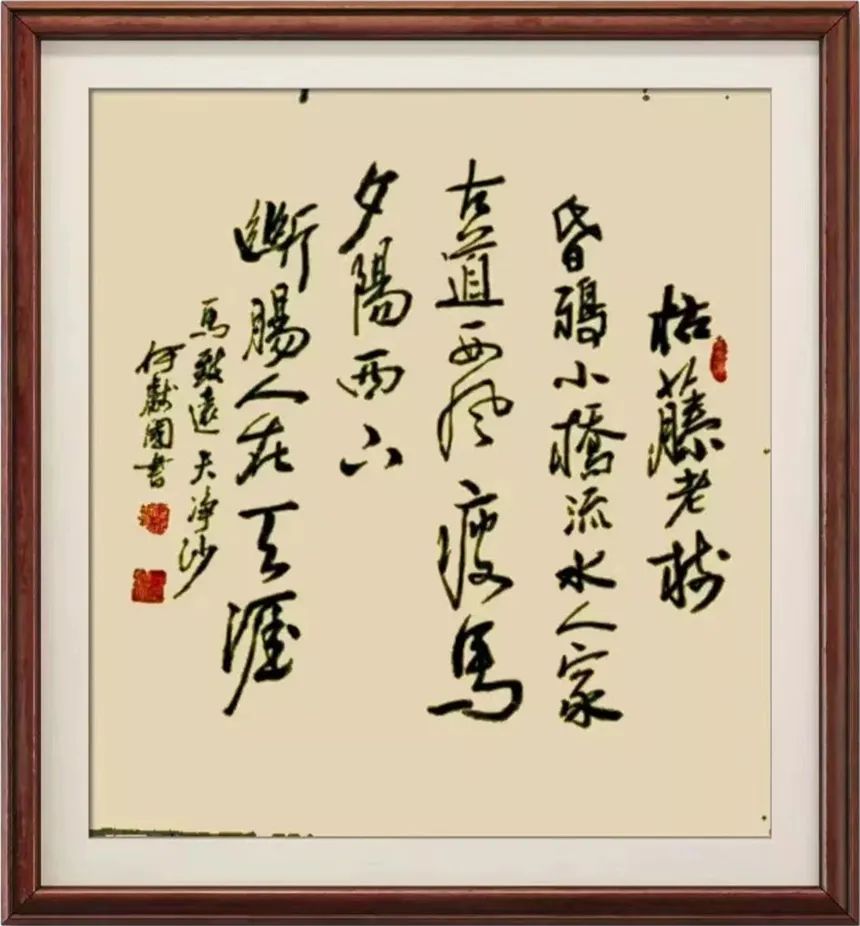 枯藤老树
昏鴉小橋流水人家
古道西风瘦馬
夕陽西下
斷腸人在天涯
馬致遠天净沙
何獻國書